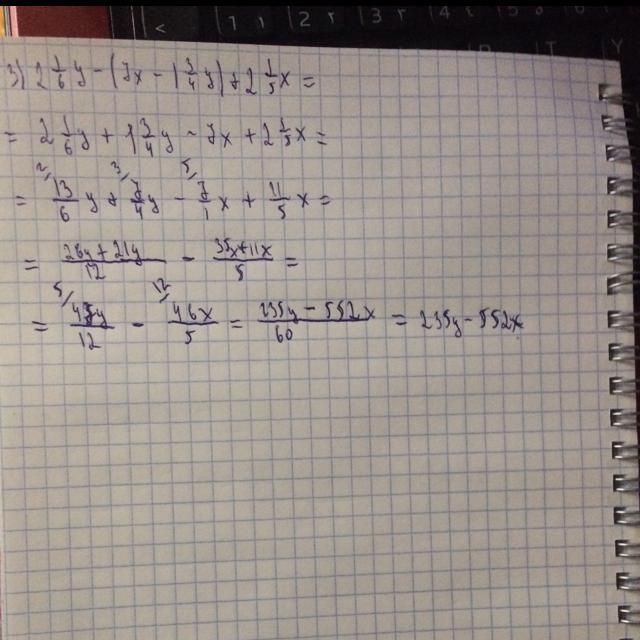 3) 2 1/6 y - (7x - 1 3/4 y) + 2 1/5 x =
= 2 1/6 y + 1 3/4 y - 7x + 2 1/5 x =
= 13/6 y + 7/4 y - 7/1 x + 11/5 x =
= (26y + 21y)/12 - (35x + 11x)/5 =
= 45y/12 - 46x/5 = (235y - 552x)/60 = 235y - 552x